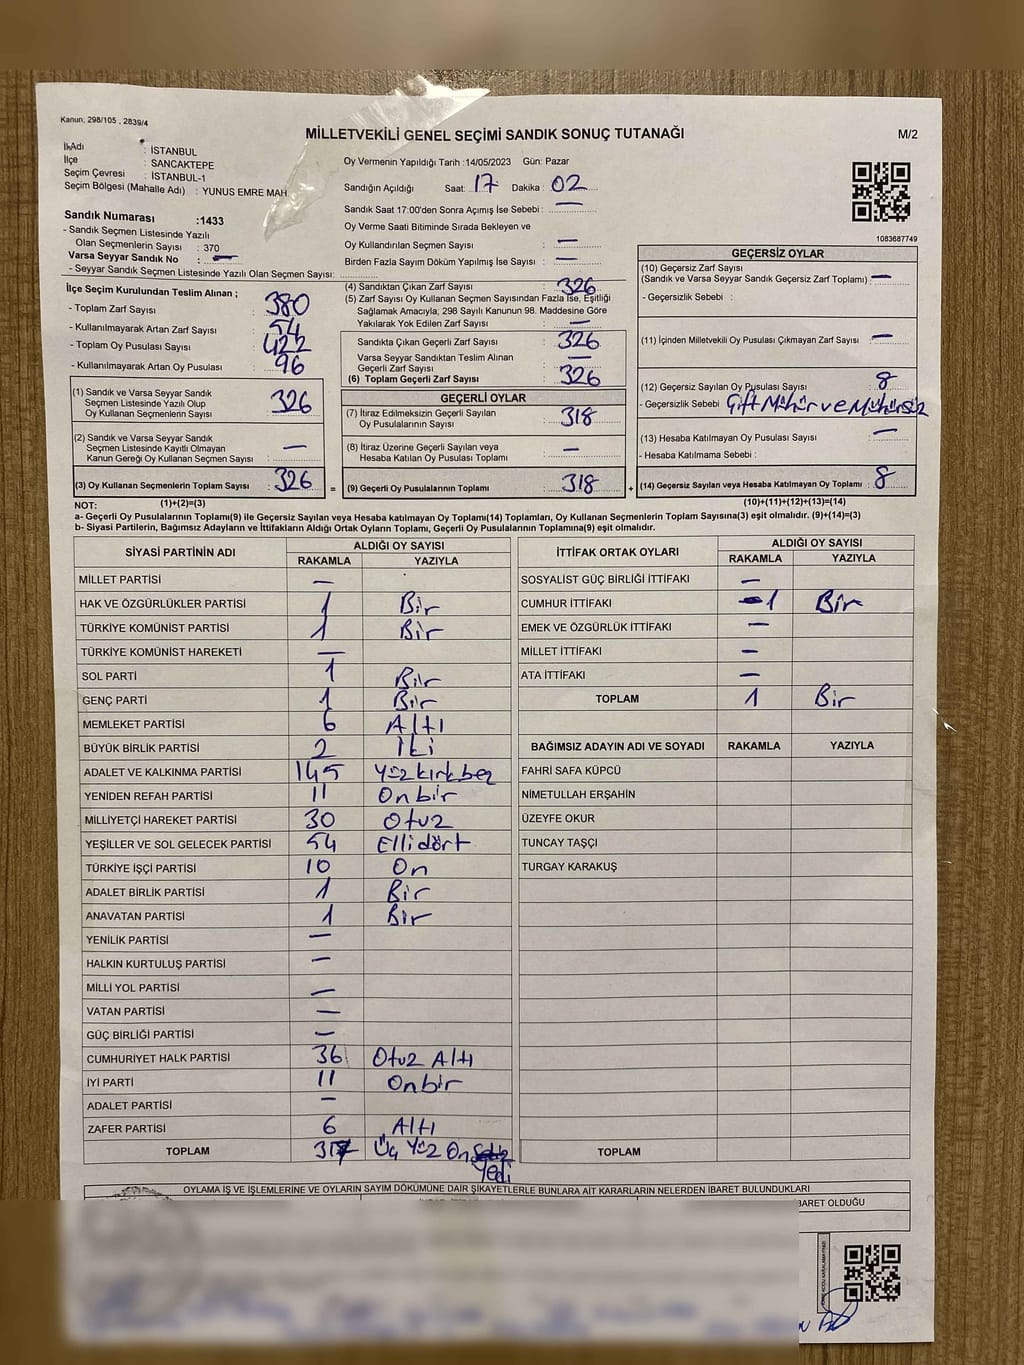 Kanun: 298/105 , 2839/4
MİLLETVEKİLİ GENEL SEÇİMİ SANDIK SONUÇ TUTANAĞI
M/2
İli Adı : İSTANBUL
İlçe : SANCAKTEPE
Seçim Çevresi : İSTANBUL-1
Seçim Bölgesi (Mahalle Adı) : YUNUS EMRE MAH.
Sandık Numarası :1433
- Sandık Seçmen Listesinde Yazılı
Olan Seçmenlerin Sayısı : 370
Varsa Seyyar Sandık No : —
- Seyyar Sandık Seçmen Listesinde Yazılı Olan Seçmen Sayısı:
Oy Vermenin Yapıldığı Tarih :14/05/2023 Gün: Pazar
Sandığın Açıldığı Saat: 17 Dakika : 02
Sandık Saat 17:00'den Sonra Açımış İse Sebebi : —
Oy Verme Saati Bitiminde Sırada Bekleyen ve
Oy Kullandırılan Seçmen Sayısı : —
Birden Fazla Sayım Döküm Yapılmış İse Sayısı : —
1083687749
İlçe Seçim Kurulundan Teslim Alınan ;
- Toplam Zarf Sayısı : 380
- Kullanılmayarak Artan Zarf Sayısı : 54
- Toplam Oy Pusulası Sayısı : 422
- Kullanılmayarak Artan Oy Pusulası : 96
(1) Sandık ve Varsa Seyyar Sandık
Seçmen Listesinde Yazılı Olup
Oy Kullanan Seçmenlerin Sayısı : 326
(2) Sandık ve Varsa Seyyar Sandık
Seçmen Listesinde Kayıtlı Olmayan
Kanun Gereği Oy Kullanan Seçmen Sayısı : —
(3) Oy Kullanan Seçmenlerin Toplam Sayısı : 326
(4) Sandıktan Çıkan Zarf Sayısı : 326
(5) Zarf Sayısı Oy Kullanan Seçmen Sayısından Fazla İse, Eşitliği
Sağlamak Amacıyla; 298 Sayılı Kanunun 98. Maddesine Göre
Yakılarak Yok Edilen Zarf Sayısı : —
Sandıkta Çıkan Geçerli Zarf Sayısı : 326
Varsa Seyyar Sandıktan Teslim Alınan
Geçerli Zarf Sayısı : —
(6) Toplam Geçerli Zarf Sayısı : 326
GEÇERLİ OYLAR
(7) İtiraz Edilmeksizin Geçerli Sayılan
Oy Pusulalarının Sayısı : 318
(8) İtiraz Üzerine Geçerli Sayılan veya
Hesaba Katılan Oy Pusulası Toplamı : —
= (9) Geçerli Oy Pusulalarının Toplamı : 318 +
GEÇERSİZ OYLAR
(10) Geçersiz Zarf Sayısı
(Sandık ve Varsa Seyyar Sandık Geçersiz Zarf Toplamı) : —
- Geçersizlik Sebebi :
(11) İçinden Milletvekili Oy Pusulası Çıkmayan Zarf Sayısı : —
(12) Geçersiz Sayılan Oy Pusulası Sayısı : 8
- Geçersizlik Sebebi : Çift Mühür ve Mühürsüz
(13) Hesaba Katılmayan Oy Pusulası Sayısı : —
- Hesaba Katılmama Sebebi :
(14) Geçersiz Sayılan veya Hesaba Katılmayan Oy Toplamı : 8
NOT: (1)+(2)=(3)
(10)+(11)+(12)+(13)=(14)
a- Geçerli Oy Pusulalarının Toplamı(9) ile Geçersiz Sayılan veya Hesaba katılmayan Oy Toplamı(14) Toplamları, Oy Kullanan Seçmenlerin Toplam Sayısına(3) eşit olmalıdır. (9)+(14)=(3)
b- Siyasi Partilerin, Bağımsız Adayların ve İttifakların Aldığı Oyların Toplamı, Geçerli Oy Pusulalarının Toplamına(9) eşit olmalıdır.
SİYASİ PARTİNİN ADI ALDIĞI OY SAYISI
RAKAMLA YAZIYLA
MİLLET PARTİSİ —
HAK VE ÖZGÜRLÜKLER PARTİSİ 1 Bir
TÜRKİYE KOMÜNİST PARTİSİ 1 Bir
TÜRKİYE KOMÜNİST HAREKETİ —
SOL PARTİ 1 Bir
GENÇ PARTİ 1 Bir
MEMLEKET PARTİSİ 6 Altı
BÜYÜK BİRLİK PARTİSİ 2 İki
ADALET VE KALKINMA PARTİSİ 145 Yüzkırkbeş
YENİDEN REFAH PARTİSİ 11 Onbir
MİLLİYETÇİ HAREKET PARTİSİ 30 Otuz
YEŞİLLER VE SOL GELECEK PARTİSİ 54 Ellidört
TÜRKİYE İŞÇİ PARTİSİ 10 On
ADALET BİRLİK PARTİSİ 1 Bir
ANAVATAN PARTİSİ 1 Bir
YENİLİK PARTİSİ —
HALKIN KURTULUŞ PARTİSİ —
MİLLİ YOL PARTİSİ —
VATAN PARTİSİ —
GÜÇ BİRLİĞİ PARTİSİ —
CUMHURİYET HALK PARTİSİ 36 Otuz Altı
İYİ PARTİ 11 Onbir
ADALET PARTİSİ —
ZAFER PARTİSİ 6 Altı
TOPLAM 317 Üç Yüz On
Yedi
İTTİFAK ORTAK OYLARI ALDIĞI OY SAYISI
RAKAMLA YAZIYLA
SOSYALİST GÜÇ BİRLİĞİ İTTİFAKI —
CUMHUR İTTİFAKI 1 Bir
EMEK VE ÖZGÜRLÜK İTTİFAKI —
MİLLET İTTİFAKI —
ATA İTTİFAKI —
TOPLAM 1 Bir
BAĞIMSIZ ADAYIN ADI VE SOYADI RAKAMLA YAZIYLA
FAHRİ SAFA KÜPCÜ
NİMETULLAH ERŞAHİN
ÜZEYFE OKUR
TUNCAY TAŞÇI
TURGAY KARAKUŞ
TOPLAM
OYLAMA İŞ VE İŞLEMLERİNE VE OYLARIN SAYIM DÖKÜMÜNE DAİR ŞİKAYETLERLE BUNLARA AİT KARARLARIN NELERDEN İBARET BULUNDUKLARI
İBARET OLDUĞU